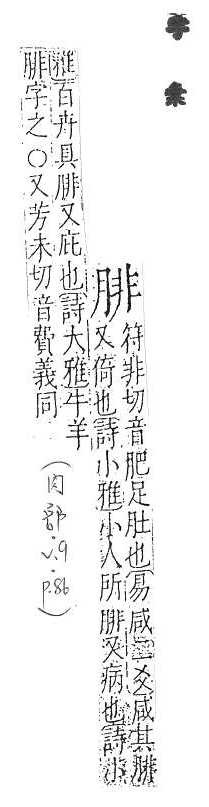 腓
符非切音肥足肚也易咸二爻咸其腓
又倚也詩小雅小人所腓又病也詩小
雅百卉具腓又庇也詩大雅牛羊
腓字之○又芳未切音費義同
(肉部 v.9. p.86)